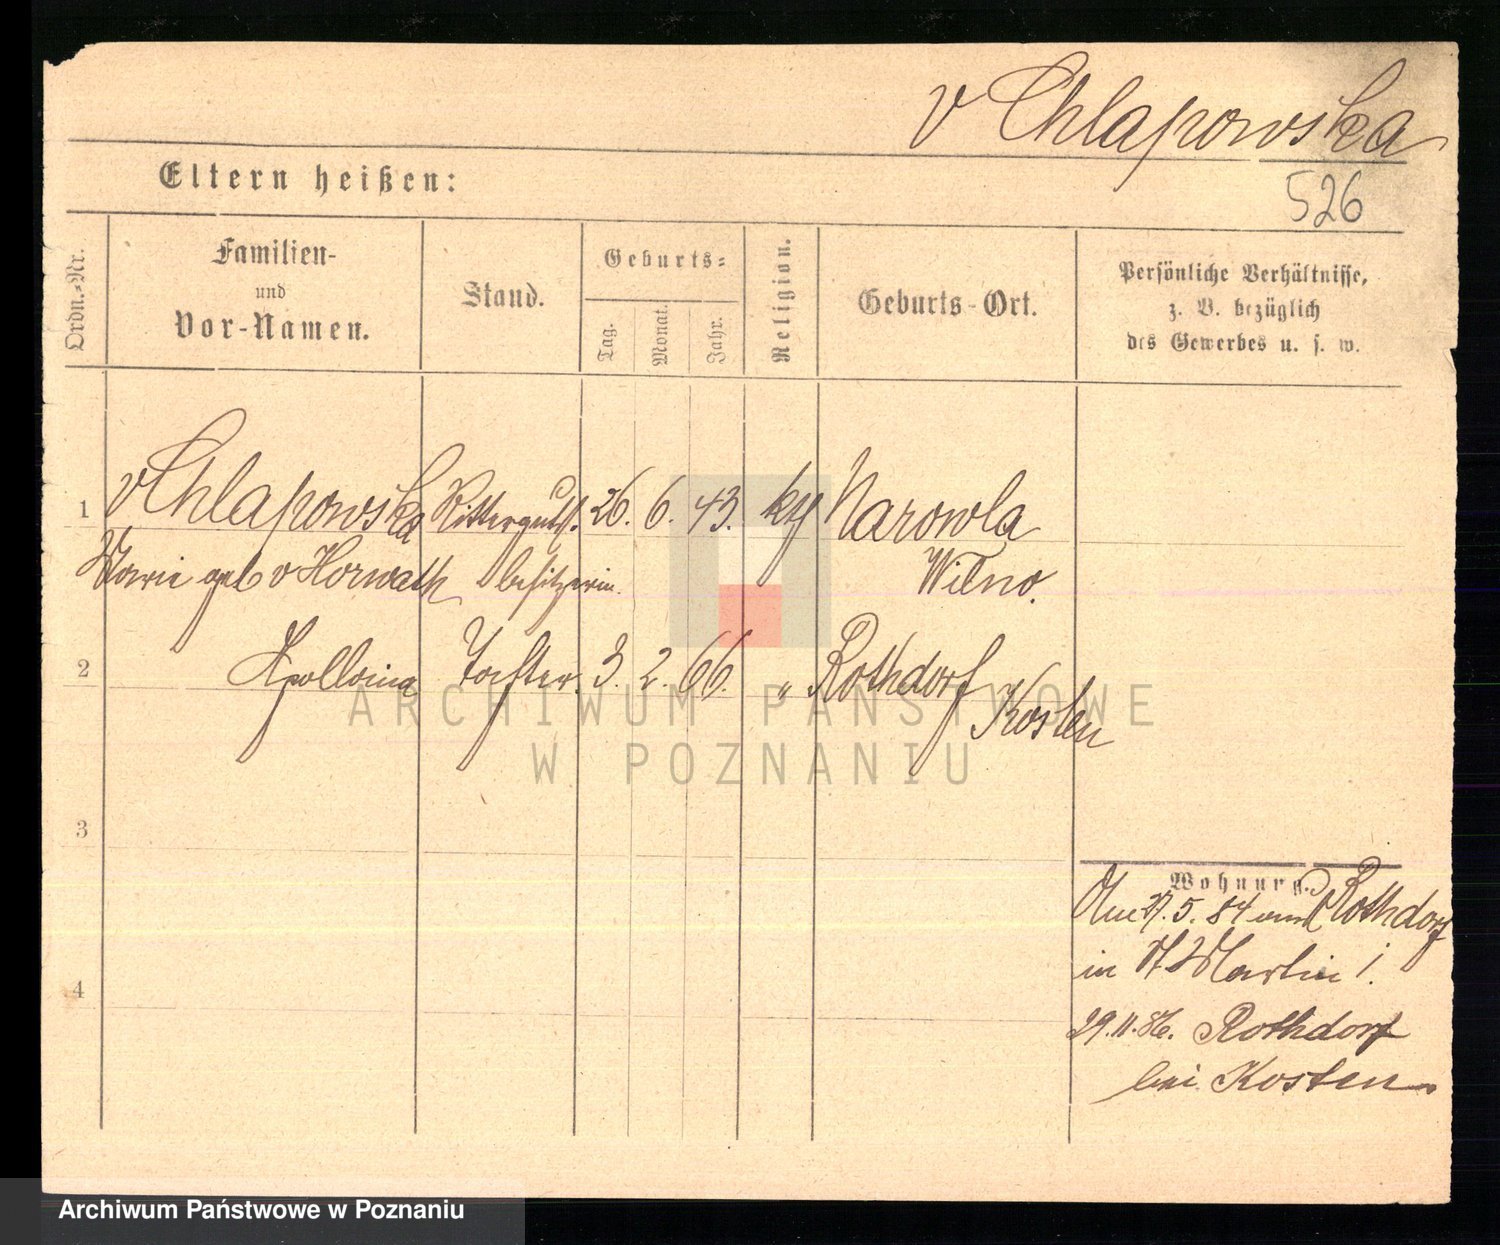 v Chlapowska
Eltern heißen:
526
Ordn.-Nr.
Familien-
und
Vor-Namen.
Stand.
Geburts-
Tag.
Monat.
Jahr.
Religion.
Geburts-Ort.
Persönliche Verhältnisse,
z. B. bezüglich
des Gewerbes u. s. w.
1 v Chlapowska Ritterguts. 26. 6. 43. Narowla
Marie geb v Horwath besitzerin. Wilno.
2 Apollonia Tochter. 3. 2. 66. " Rothdorf
Kosten
ARCHIWUM PAŃSTWOWE
W POZNANIU
3
Wohnung.
27. 5. 84 Rothdorf
in St Martin 1.
4
29.11.86. Rothdorf
bei Kosten
Archiwum Państwowe w Poznaniu